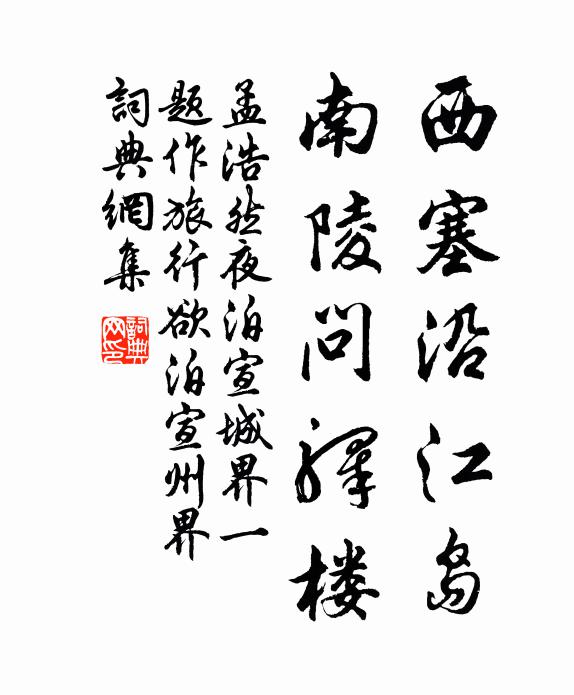 西塞沿江岛
南陵问驿楼
孟浩然夜泊宣城界一
题作旅行欲泊宣州界
词典网集
詞典网印